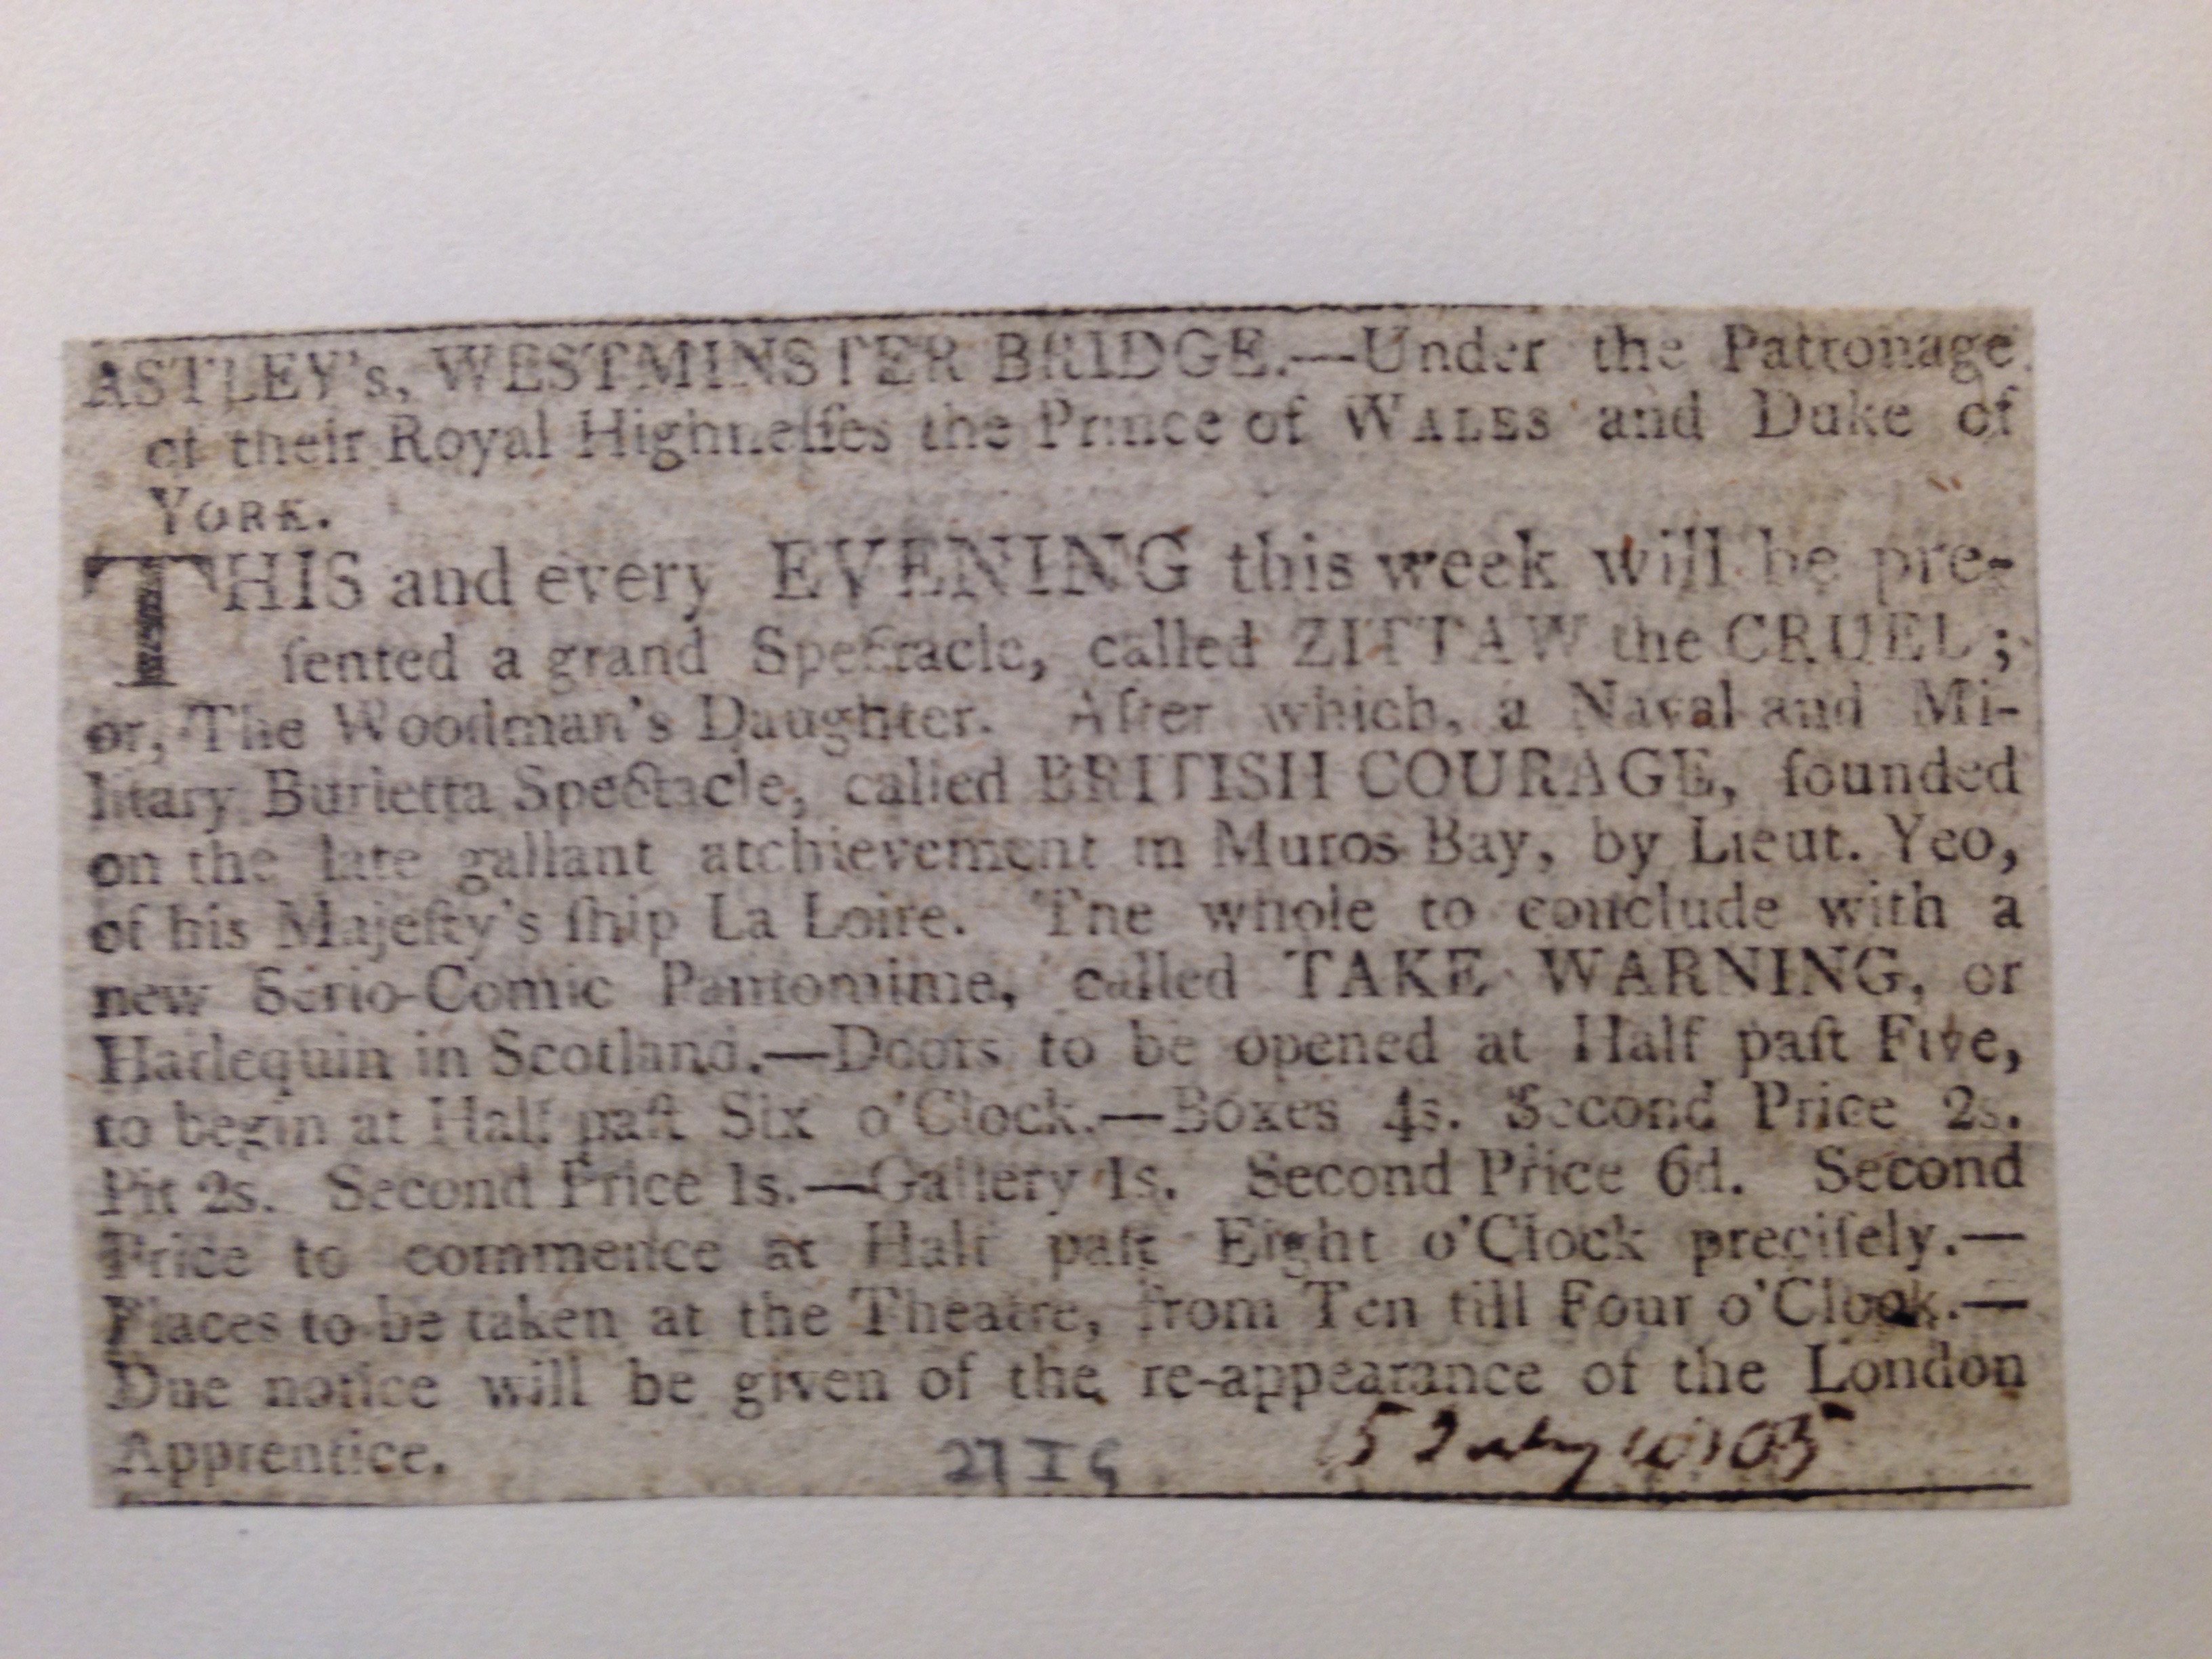 ASTLEY's, WESTMINSTER BRIDGE.—Under the Patronage
of their Royal Highneſſes the Prince of WALES and Duke of
YORK.
THIS and every EVENING this week will be pre-
ſented a grand Spectacle, called ZITTAW the CRUEL;
or, The Woodman's Daughter. After which, a Naval and Mi-
litary Burletta Spectacle, called BRITISH COURAGE, founded
on the late gallant atchievement in Muros Bay, by Lieut. Yeo,
of his Majeſty's ſhip La Loire. The whole to conclude with a
new Serio-Comic Pantomime, called TAKE WARNING, or
Harlequin in Scotland.—Doors to be opened at Half paſt Five,
to begin at Half paſt Six o'Clock.—Boxes 4s. Second Price 2s.
Pit 2s. Second Price 1s.—Gallery 1s. Second Price 6d. Second
Price to commence at Half paſt Eight o'Clock preciſely.—
Places to be taken at the Theatre, from Ten till Four o'Clock.—
Due notice will be given of the re-appearance of the London
Apprentice.